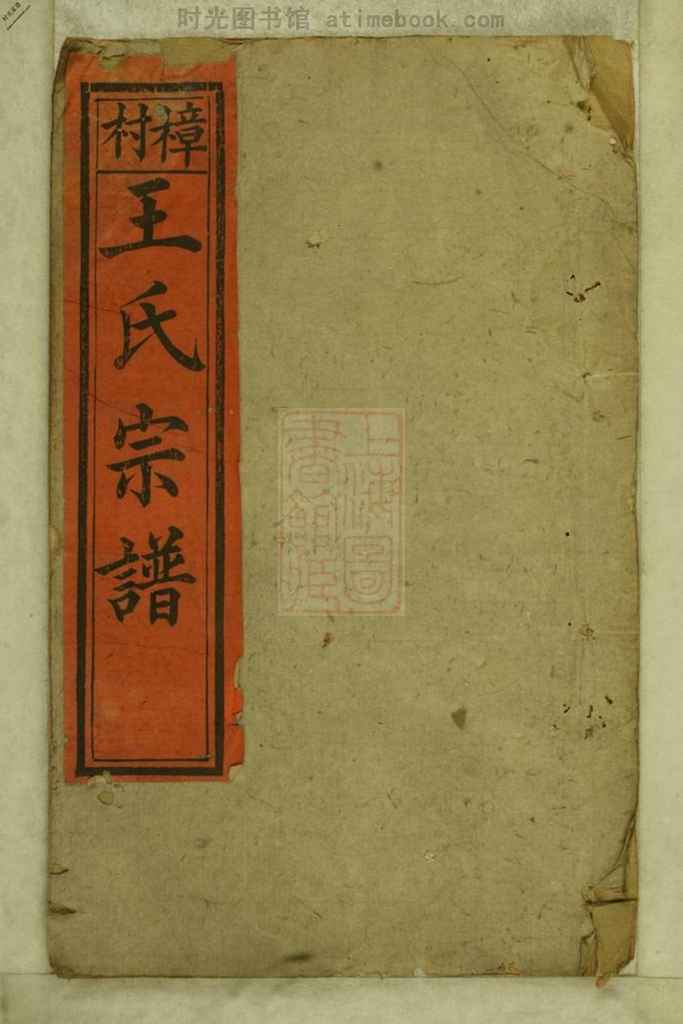 时光图书馆 atimebook.com
樟村
王氏宗譜
上海圖
書館藏